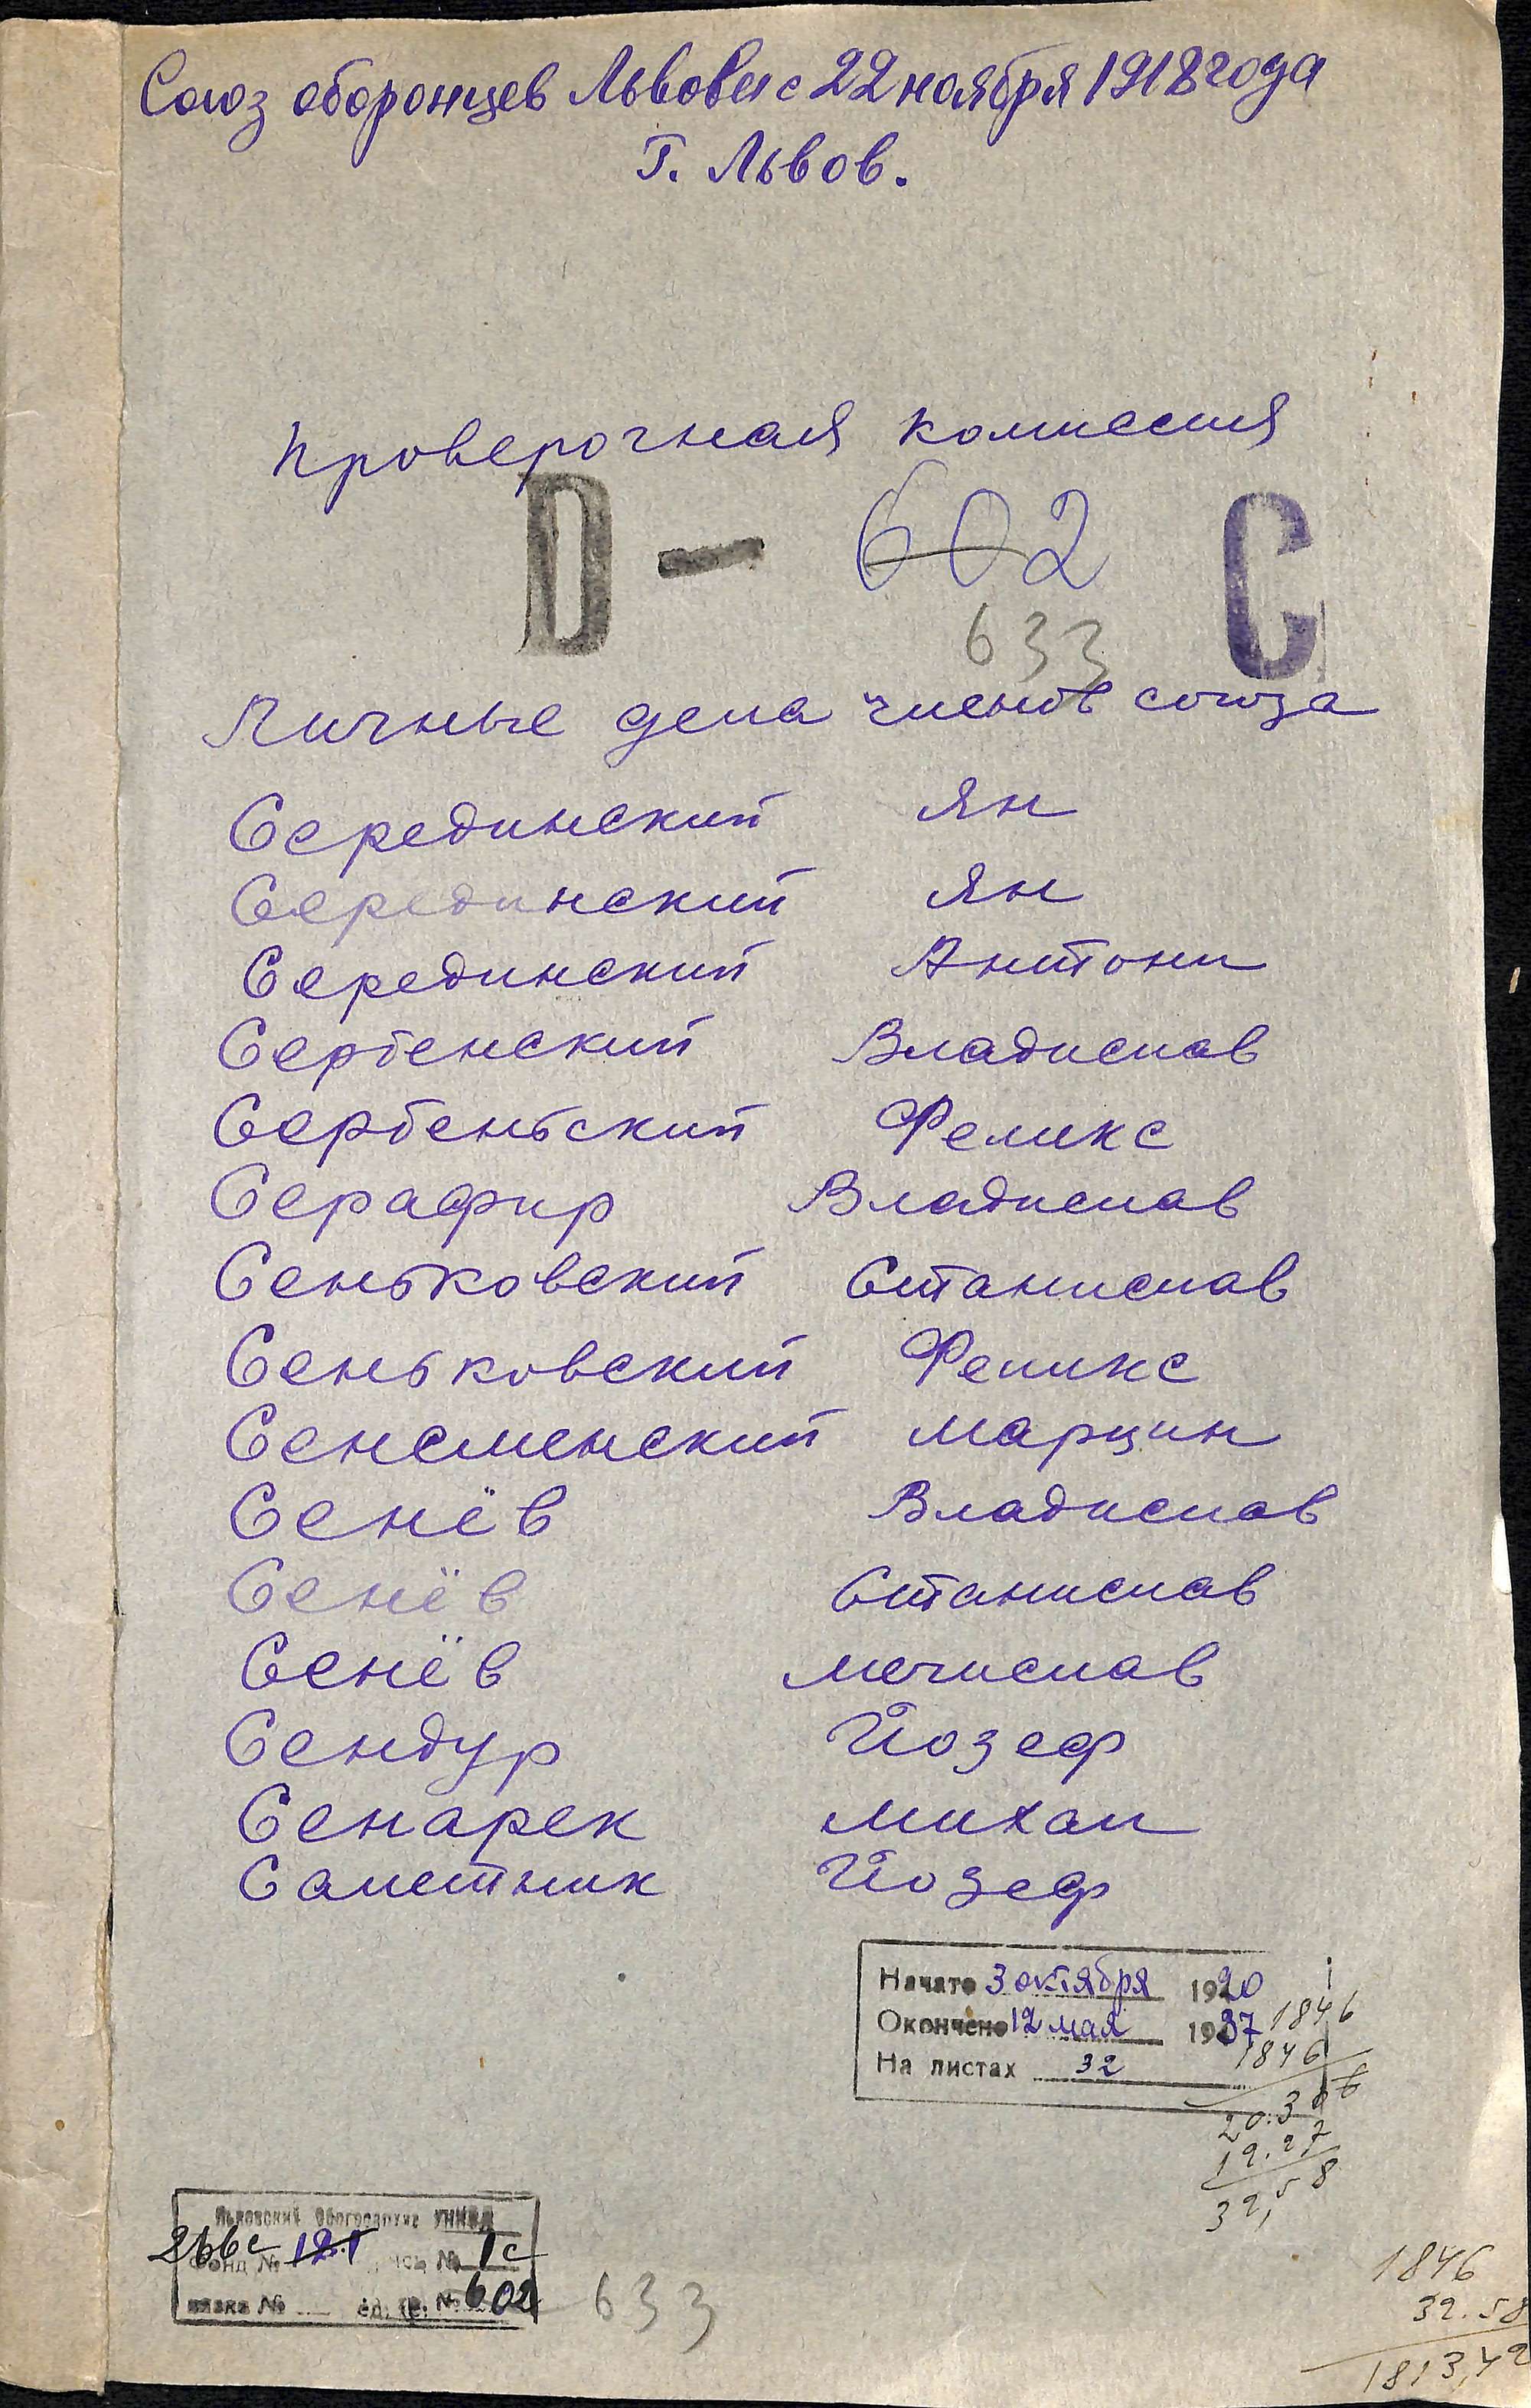 Союз оборонцев Львова с 22 ноября 1918 года
г. Львов.
Проверочная комиссия
D — 602 С
633
Личные дела членов союза
Серединский Ян
Серединский Ян
Серединский Антони
Сербенский Владислав
Сербеньский Феликс
Серафир Владислав
Сеньковский Станислав
Сеньковский Феликс
Сенсменский Марцин
Сенёв Владислав
Сенёв Станислав
Сенёв Мечислав
Сендур Йозеф
Сенарек Михал
Саметник Йозеф
Начато 3 октября 1920
Окончено 12 мая 1937
На листах 32
1846
1846
20.3
19.27
32,58
Львовский Облгосархив УНКВД
Фонд № 121 266с опись № 1с
вязка № ед. хр. № 602
633
1846
32.58
1813,42